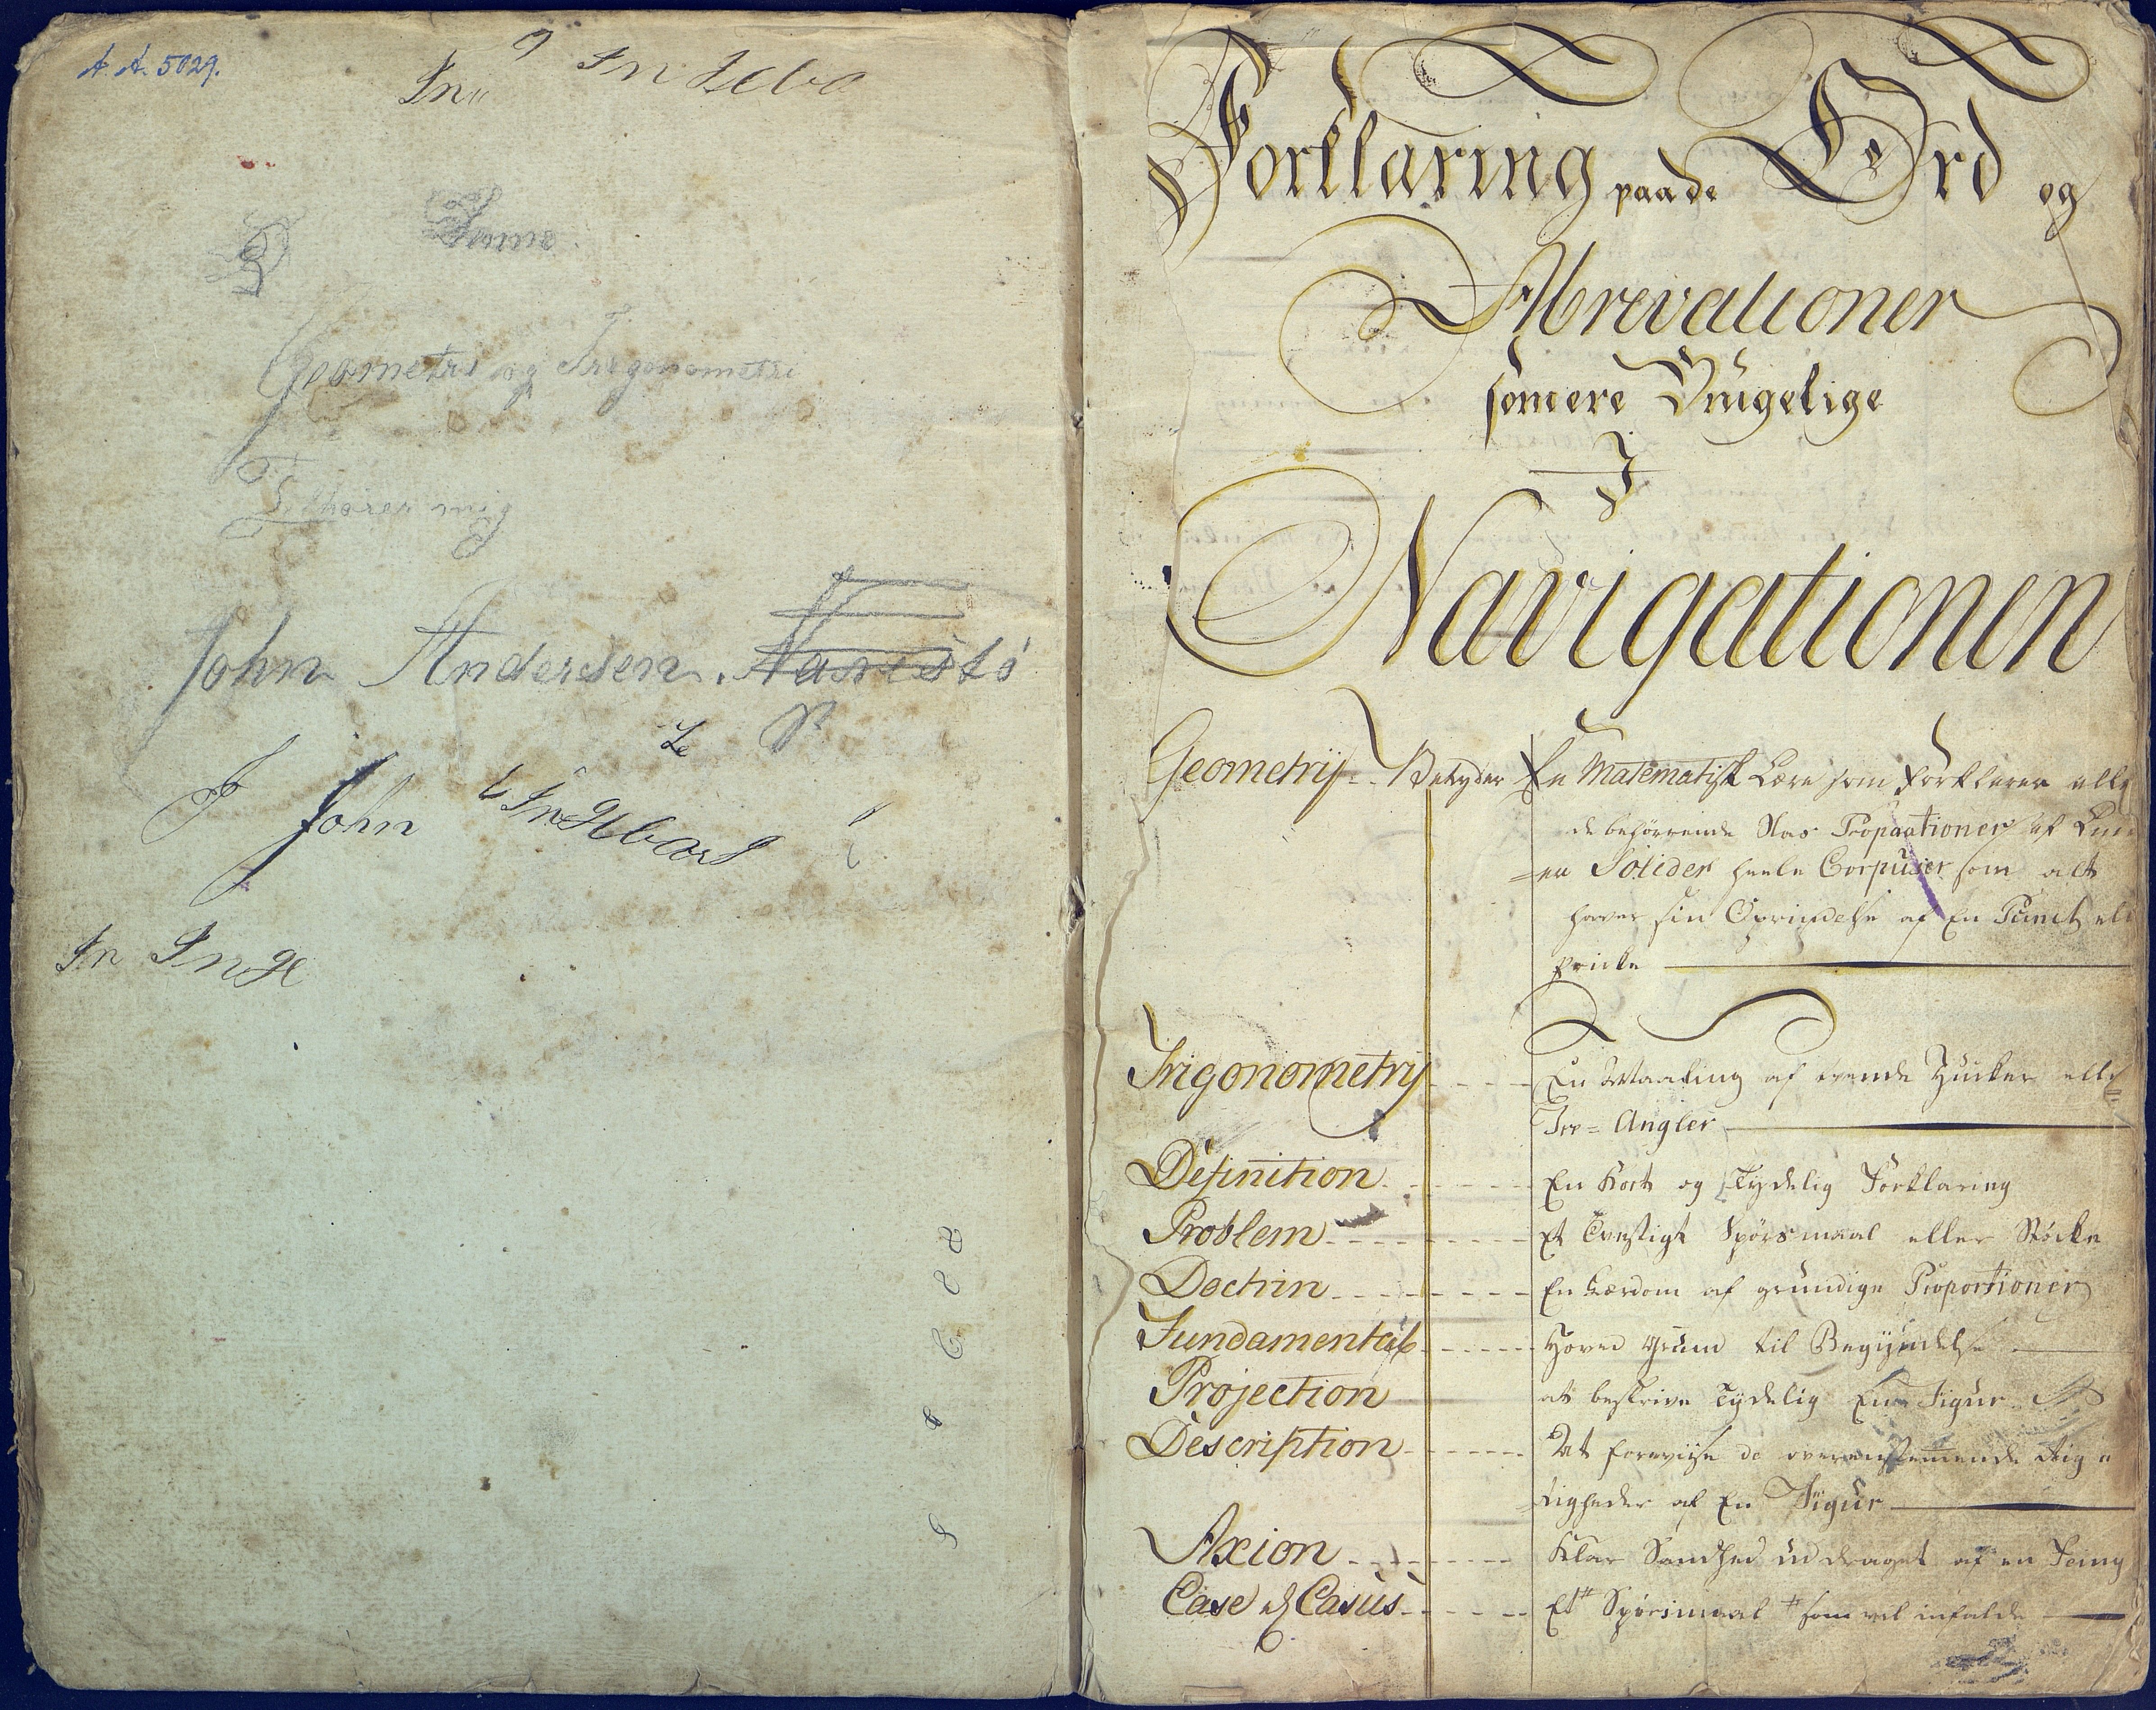 A. A. 5029.
In
Geometri og Trigonometri
Tilhører mig
John Andersen. Narestø
John Ingebor
In Inge
Forklaring paa de Ord og
Abrevationer
som ere Brugelige
I
Navigationen
Geometrij Betyder En Matematisk Lære som Forklarer alle
de behørende Slas Propaationer af
er Solider heele Corpuser som alt
haver sin Oprindelse af En Punct ell
Pricke
Trigonometrij En Maaling af trende Hucker elle
Tre = Angler
Definition En Kort og Tydelig Forklaring
Problem Et Tvestigt Spørsmaal eller Støcke
Doctrin En Lærdom af grundige Proportioner
Fundamental Hoved Grund til Begyndelse
Projection at beskrive Tydelig En Figur
Description At foreviise de overenstemende
ligheder af En Figur
Axion Klar Sandhed uddraget af en
Case el Casus Et Spørsmaal som vel infalde